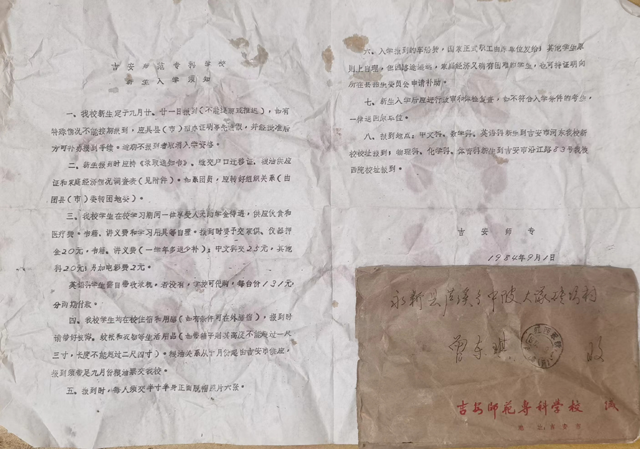 吉安师范专科学校
新生入学须知
一、我校新生定于九月廿、廿一日报到（不能提前或推迟），如有
特殊情况不能按期报到，应凭县（市）招办证明事先请假，并经批准后
方可补办报到手续。逾期不报到者取消入学资格。
二、新生报到时应持《录取通知书》、缴交户口迁移证、粮油供应
证和家庭经济情况调查表（见附件）。如系团员，应转好组织关系（由
团县（市）委转团地委）。
三、我校学生在校学习期间一律享受人民助学金待遇，供应伙食和
医疗费。书籍、讲义费和学习用具等自理。报到时要予交书籍、仪器押
金20元，书籍、讲义费（一律多退少补）：中文科交25元，其他
科20元；另加电影费2元。
英语科学生要自带收录机，若没有，学校可代购，每台价131元，
分期付款。
四、我校学生均在校住宿和用膳（如有条件可在外居宿），报到时
请带好被帐、蚊帐和衣箱等生活用品（如带箱子则其高度不能超过一尺
三寸，长度不能超过二尺四寸）。粮油关系从十月份起由吉安市供应，
报到须带足九月份粮油票交我校。
五、报到时，每人缴交半寸半身正面脱帽照片六张。
六、入学报到的车船费，国家正式职工由原单位发给；其他学生原则
上自理，
所在县招生委员会申请补助。
七、新生入学后应进行政审和体格复查，如不符合入学条件的考生，
一律退回原单位。
八、报到地点：中文科、数学科、英语科新生到吉安市河东我校新
校校址报到；物理科、化学科、体育科新生到吉安市沿江路83号我校
西院校址报到。
吉安师专
1984年9月1日
永新县芦溪乡
曾
收
吉安师范专科学校 缄